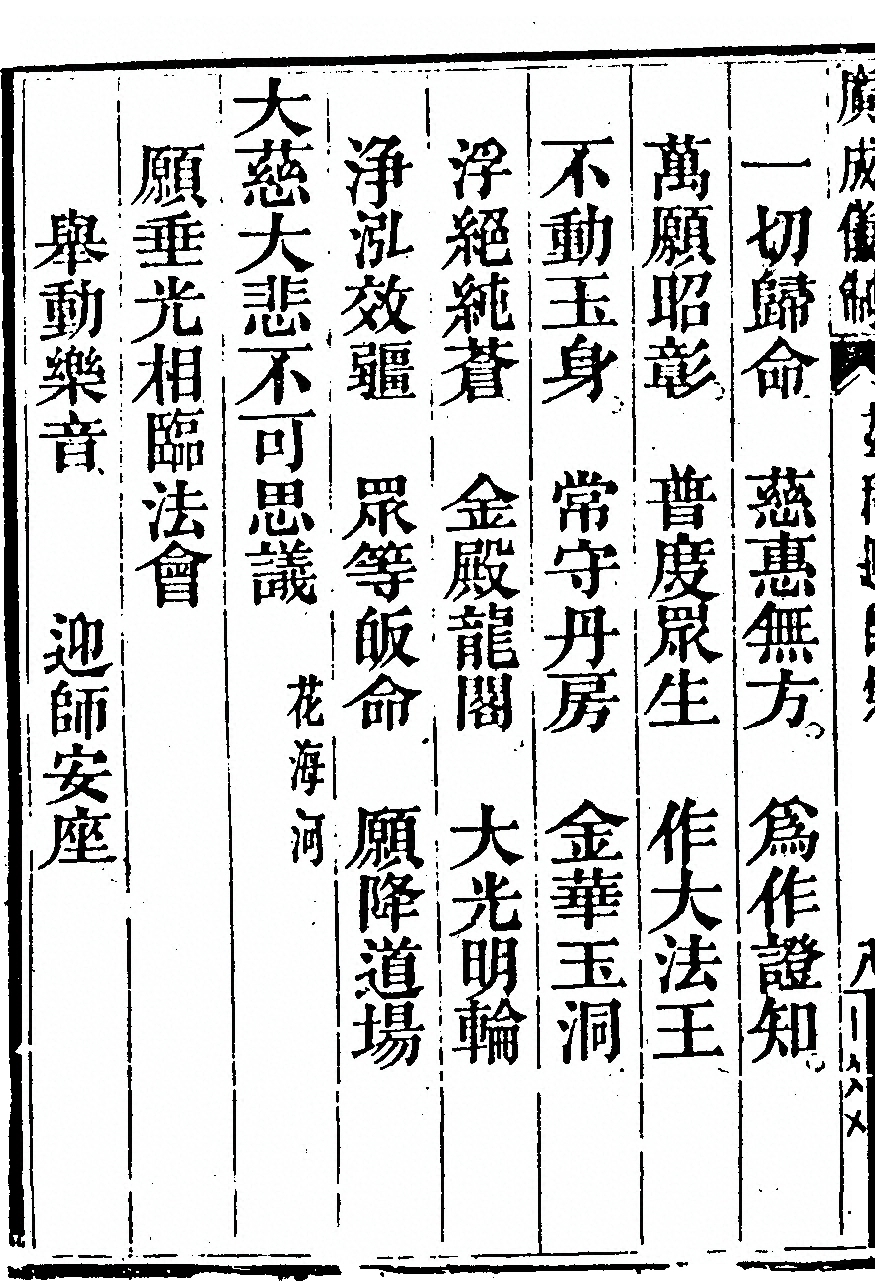 廣成儀制
一切歸命　慈惠無方　爲作證知
萬願昭彰　普度眾生　作大法王
不動玉身　常守丹房　金華玉洞
浮絕純蒼　金殿龍閣　大光明輪
淨泓效疆　眾等皈命　願降道場
大慈大悲不可思議　花海河
願垂光相臨法會
舉動樂音　迎師安座